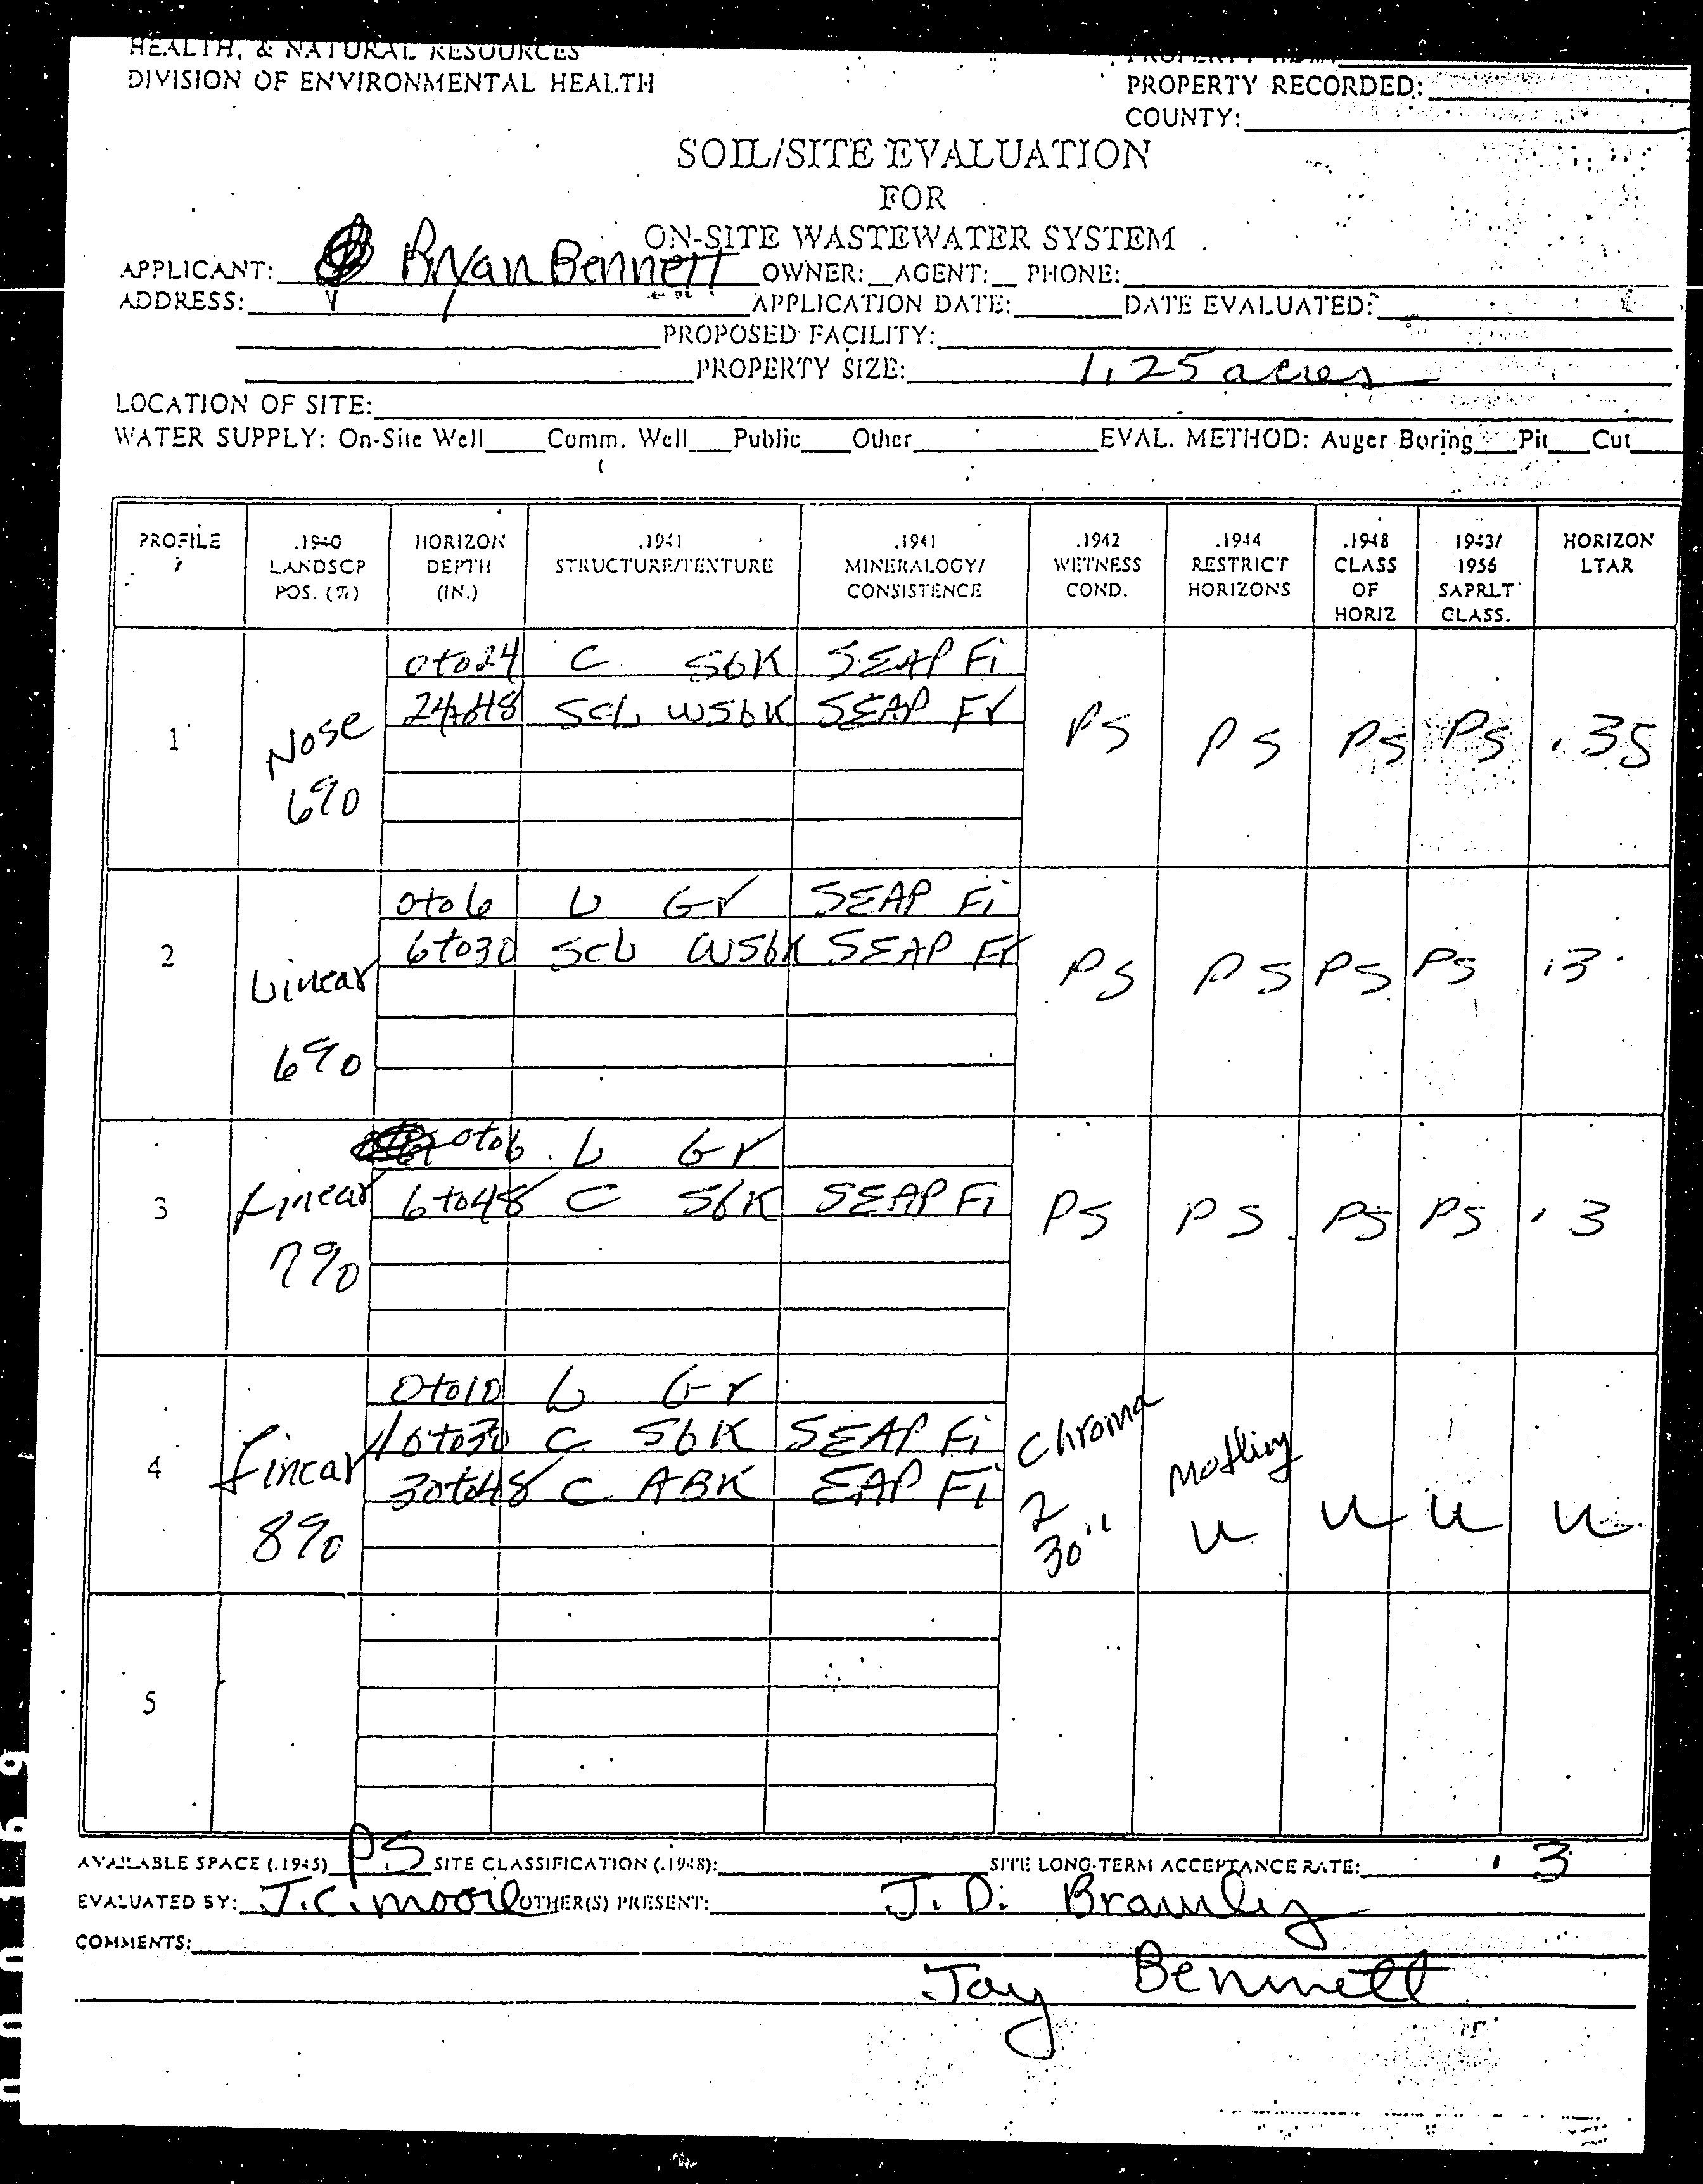 HEALTH, & NATURAL RESOURCES
DIVISION OF ENVIRONMENTAL HEALTH
PROPERTY RECORDED:
COUNTY:
SOIL/SITE EVALUATION
FOR
ON-SITE WASTEWATER SYSTEM
APPLICANT: Bryan Bennett OWNER: AGENT: PHONE:
ADDRESS: APPLICATION DATE: DATE EVALUATED:
PROPOSED FACILITY:
PROPERTY SIZE: 1.25 acres
LOCATION OF SITE:
WATER SUPPLY: On-Site Well Comm. Well Public Other EVAL. METHOD: Auger Boring Pit Cut
PROFILE .1940 HORIZON .1941 .1941 .1942 .1944 .1948 1943/ HORIZON
LANDSCP DEPTH STRUCTURE/TEXTURE MINERALOGY/ WETNESS RESTRICT CLASS 1956 LTAR
POS. (%) (IN.) CONSISTENCE COND. HORIZONS OF SAPRLT
HORIZ CLASS.
0to24 C SbK SEAP Fi
24to48 SCL WSbK SEAP Fr
1 Nose PS PS PS PS .35
6%
0to6 L Gr SEAP Fi
6to30 SCL WSbK SEAP Fr
2 Linear PS PS PS PS .3
6%
0to6 L Gr
3 Linear 6to48 C SbK SEAP Fi PS PS PS PS .3
7%
0to10 L Gr
10to30 C SbK SEAP Fi Chroma
4 Linear 30to48 C ABK EAP Fi 2 Mottling
8% 30" U U U U
5
AVAILABLE SPACE (.1945) PS SITE CLASSIFICATION (.1948): SITE LONG-TERM ACCEPTANCE RATE: .3
EVALUATED BY: J.C. Moore OTHER(S) PRESENT: J. D. Brawley
COMMENTS:
Jay Bennett